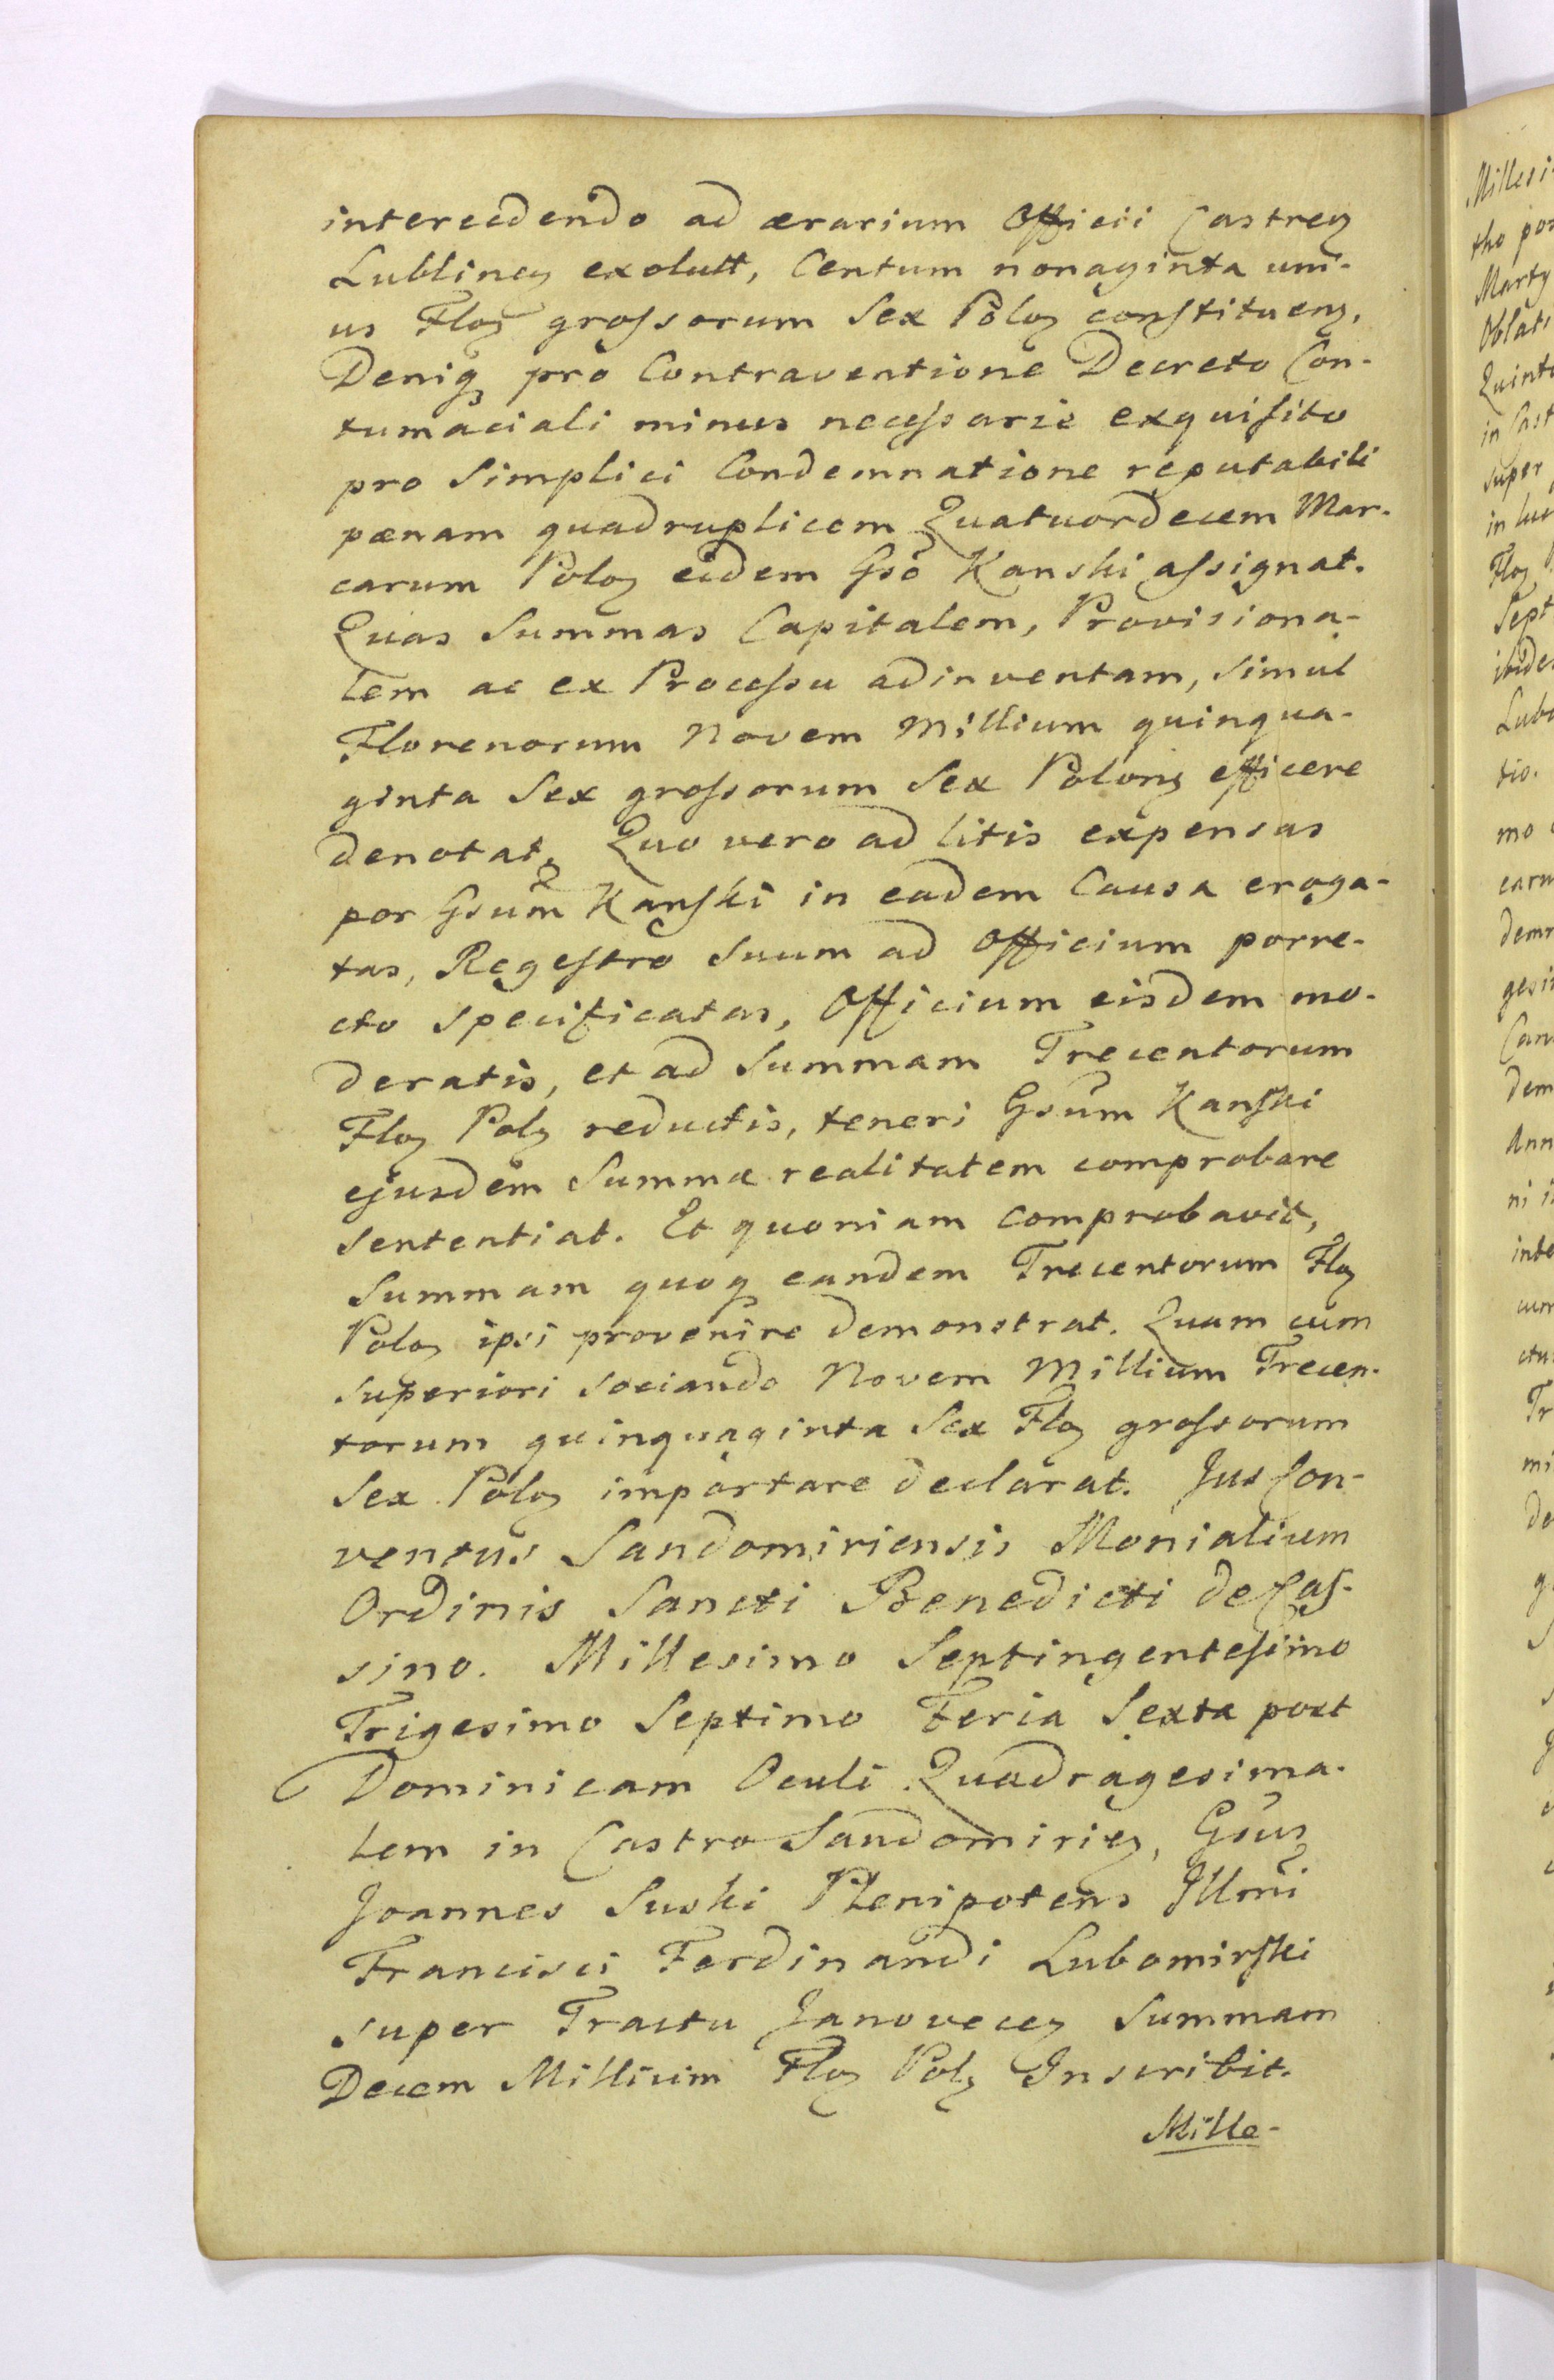 intercedendo ad ærarium Officii Castreӡ
Lublineӡ exolutt, Centum nonaginta uni-
us Floӡ grossorum Sex Poloӡ constitueӡ.
Deniqӡ pro Contraventione Decreto Con-
tumaciali minus necessarie exquisito
pro Simplici Condemnatione reputabili
pænam quadruplicem Quatuordecem Mar-
carum Poloӡ eidem Gso Kanski assignat.
Quas Summas Capitalem, Provisiona-
lem ac ex Processu adinventam, simul
Florenorum Novem Millium quinqua-
ginta Sex grossorum Sex Polonӡ efficere
denotat, Quo vero ad litis expensas
per Gsum Kanski in eadem Causa eroga-
tas, Regestro Suum ad Officium porre-
cto specificatas, Officium eisdem mo-
deratis, et ad Summam Trecentorum
Floӡ Polӡ reductis, teneri Gsum Kanski
ejusdem Summæ realitatem comprobare
sententiat. Et quoniam comprobavit,
Summam quoqӡ eandem Trecentorum Floӡ
Poloӡ ipsi provenire demonstrat. Quam cum
superiori sociando Novem Millium Trecen-
torum quinquaginta Sex Floӡ grossorum
Sex Poloӡ importare declarat. Jus Con-
ventus Sandomiriensis Monialium
Ordinis Sancti Benedicti de Cas-
sino. Millesimo Septingentesimo
Trigesimo Septimo Feria Sexta post
Dominicam Oculi Quadragesima-
lem in Castro Sandomirieӡ, Gsus
Joannes Suski Plenipotens Illmi
Francisci Ferdinandi Lubomirski
super Tractu Janoveceӡ Summam
Decem Millium Floӡ Polӡ Inscribit.
Mille-